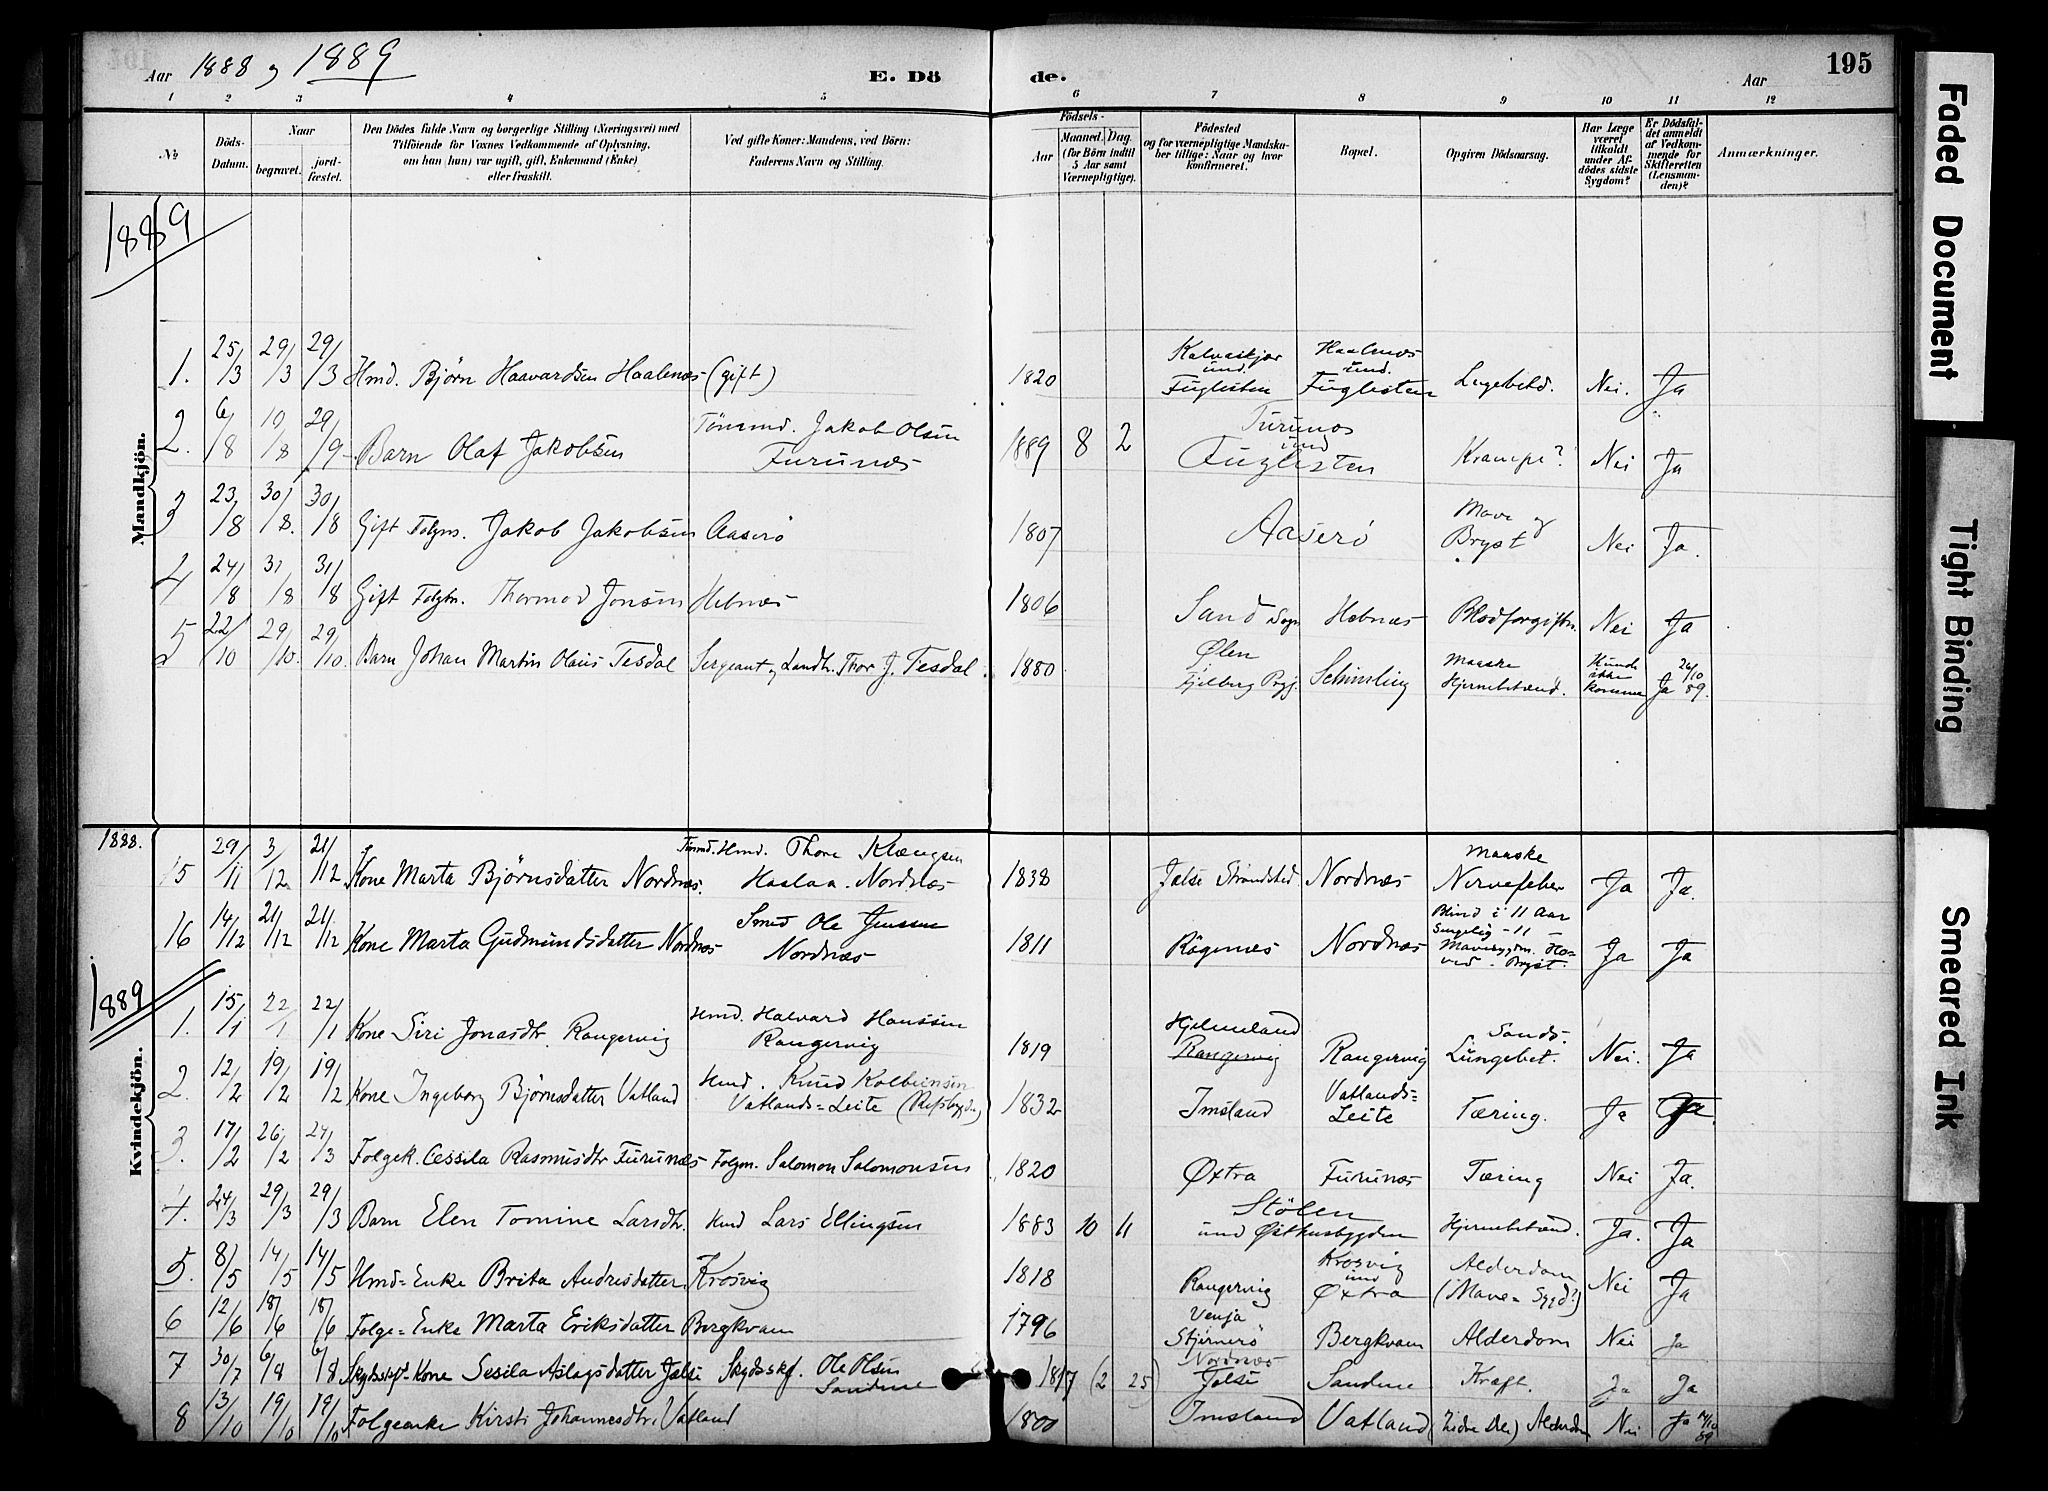 Aar 1888 og 1889 E. Dö de. Aar 195
1 2 3 4 5 6 7 8 9 10 11 12
No
Döds-Datum.
Naar
begravet.
jord-fæstet.
Den Dödes fulde Navn og borgerlige Stilling (Næringsvei) med
Tilföiende for Voxnes Vedkommende af Oplysning,
om han (hun) var ugift, gift, Enkemand (Enke)
eller fraskilt.
Ved gifte Koner: Mandens, ved Börn:
Faderens Navn og Stilling.
Födsels-
Aar
Maaned. Dag.
(for Börn indtil
5 Aar samt
Værnepligtige).
Födested
og for værnepligtige Mandska-
ber tillige: Naar og hvor
konfirmeret.
Bopæl.
Opgiven Dödsaarsag.
Har Læge
været
tilkaldt
under Af-
dödes sidste
Sygdom?
Er Dödsfal-
det anmeldt
af Vedkom-
mende for
Skifteretten
(Lensman-
den)?
Anmærkninger.
1889
Mandkjön.
1. 25/3 29/3 29/3 Hmd. Bjørn Haavardsen Haalenæs (gift) 1820 Kalvaskjær und. Fuglesten Haalenæs und. Fuglesten Lugebetd. Nei. Ja
2. 6/8 10/8 29/9 Barn Olaf Jakobsen Tömmd. Jakob Olsen Furunæs 1889 8 2 Furunæs und Fuglesten Krampe? Nei Ja
3 23/8 30/8. 30/8 Gift Folgm. Jakob Jakobsen Aaserö 1807 Aaserö Mave og Bryst Nei Ja.
4 24/8 31/8 31/8 Gift Folgm. Thormod Jonsen Hebnæs 1806 Sand Sogn Hebnæs Blodforgiftn. Nei Ja
5 22/10 29/10. 29/10. Barn Johan Martin Olaus Tesdal Sergeant og Landh. Thor J. Tesdal. 1880 Ølen Fjelberg Prgj. Schinsling Maaske Hjernebetænd. Kunde ikke komme Ja 26/10 89.
1888.
15 29/11 3/12 21/12 Kone Marta Bjørnsdatter Nordnæs. Hmd. Thore Klængsen Haalaa. Nordnæs 1838 Jælse Strandsted Nordnæs Maaske Nervefeber Ja Ja.
16 14/12 21/12 21/12 Kone Marta Gudmundsdatter Nordnæs Smed Ole Jenssen Nordnæs 1811 Rögenæs Nordnæs Blind i 11 Aar Sengelig - 11 - Mavesygdm. Ho- ved - Bryst. Ja Ja
1889
Kvindekjön.
1. 15/1 22/1 22/1 Kone Siri Jonasdtr. Rangervig Hmd. Halvard Hanssen Rangervig 1819 Hjelmeland Rangervig Rangervig Sands. Lungebet. Nei. Ja
2. 12/2 19/2 19/2 Kone Ingeborg Bjørnsdatter Vatland Hmd. Knud Kolbeinsen Vatlands=Leite (Røfsbygden) 1832 Imsland Vatlands=Leite Tæring. Ja Ja.
3. 17/2 26/2 24/3 Folgek. Cessila Rasmusdtr Furunæs Folgm. Salomon Salomonsen 1820 Øxtra Furunæs Tæring Nei Ja.
4. 24/3 29/3 29/3 Barn Elen Tomine Larsdtr. Hmd Lars Ellingsen 1883 10 11 Stölen und Østhusbygden Hjernebetænd. Ja. Ja
5. 8/5 14/5 14/5 Hmd=Enke Brita Andresdatter Krosvig 1818 Rangervig Krosvig und Øxtra Alderdom (Mave=Sygd?) Nei Ja
6 12/6 18/6 18/6 Folge=Enke Marta Eriksdatter Bergkvam 1796 Venja Stjernerö Bergkvam Alderdom Nei Ja
7 30/7 6/8 6/8 Skydsskf-Kone Sesila Aslagsdatter Jælse Skydsskf. Ole Olsen Sandene 1817 (2 25) Nordnæs Jelse Sandene Kræft. Ja Ja
8 13/10 19/10 19/10 Folgeenke Kirsti Johannesdtr. Vatland 1800 Imsland Vatland (nedre del) Alderdom Nei Ja 14/10 89
Faded Document
Tight Binding
Smeared Ink